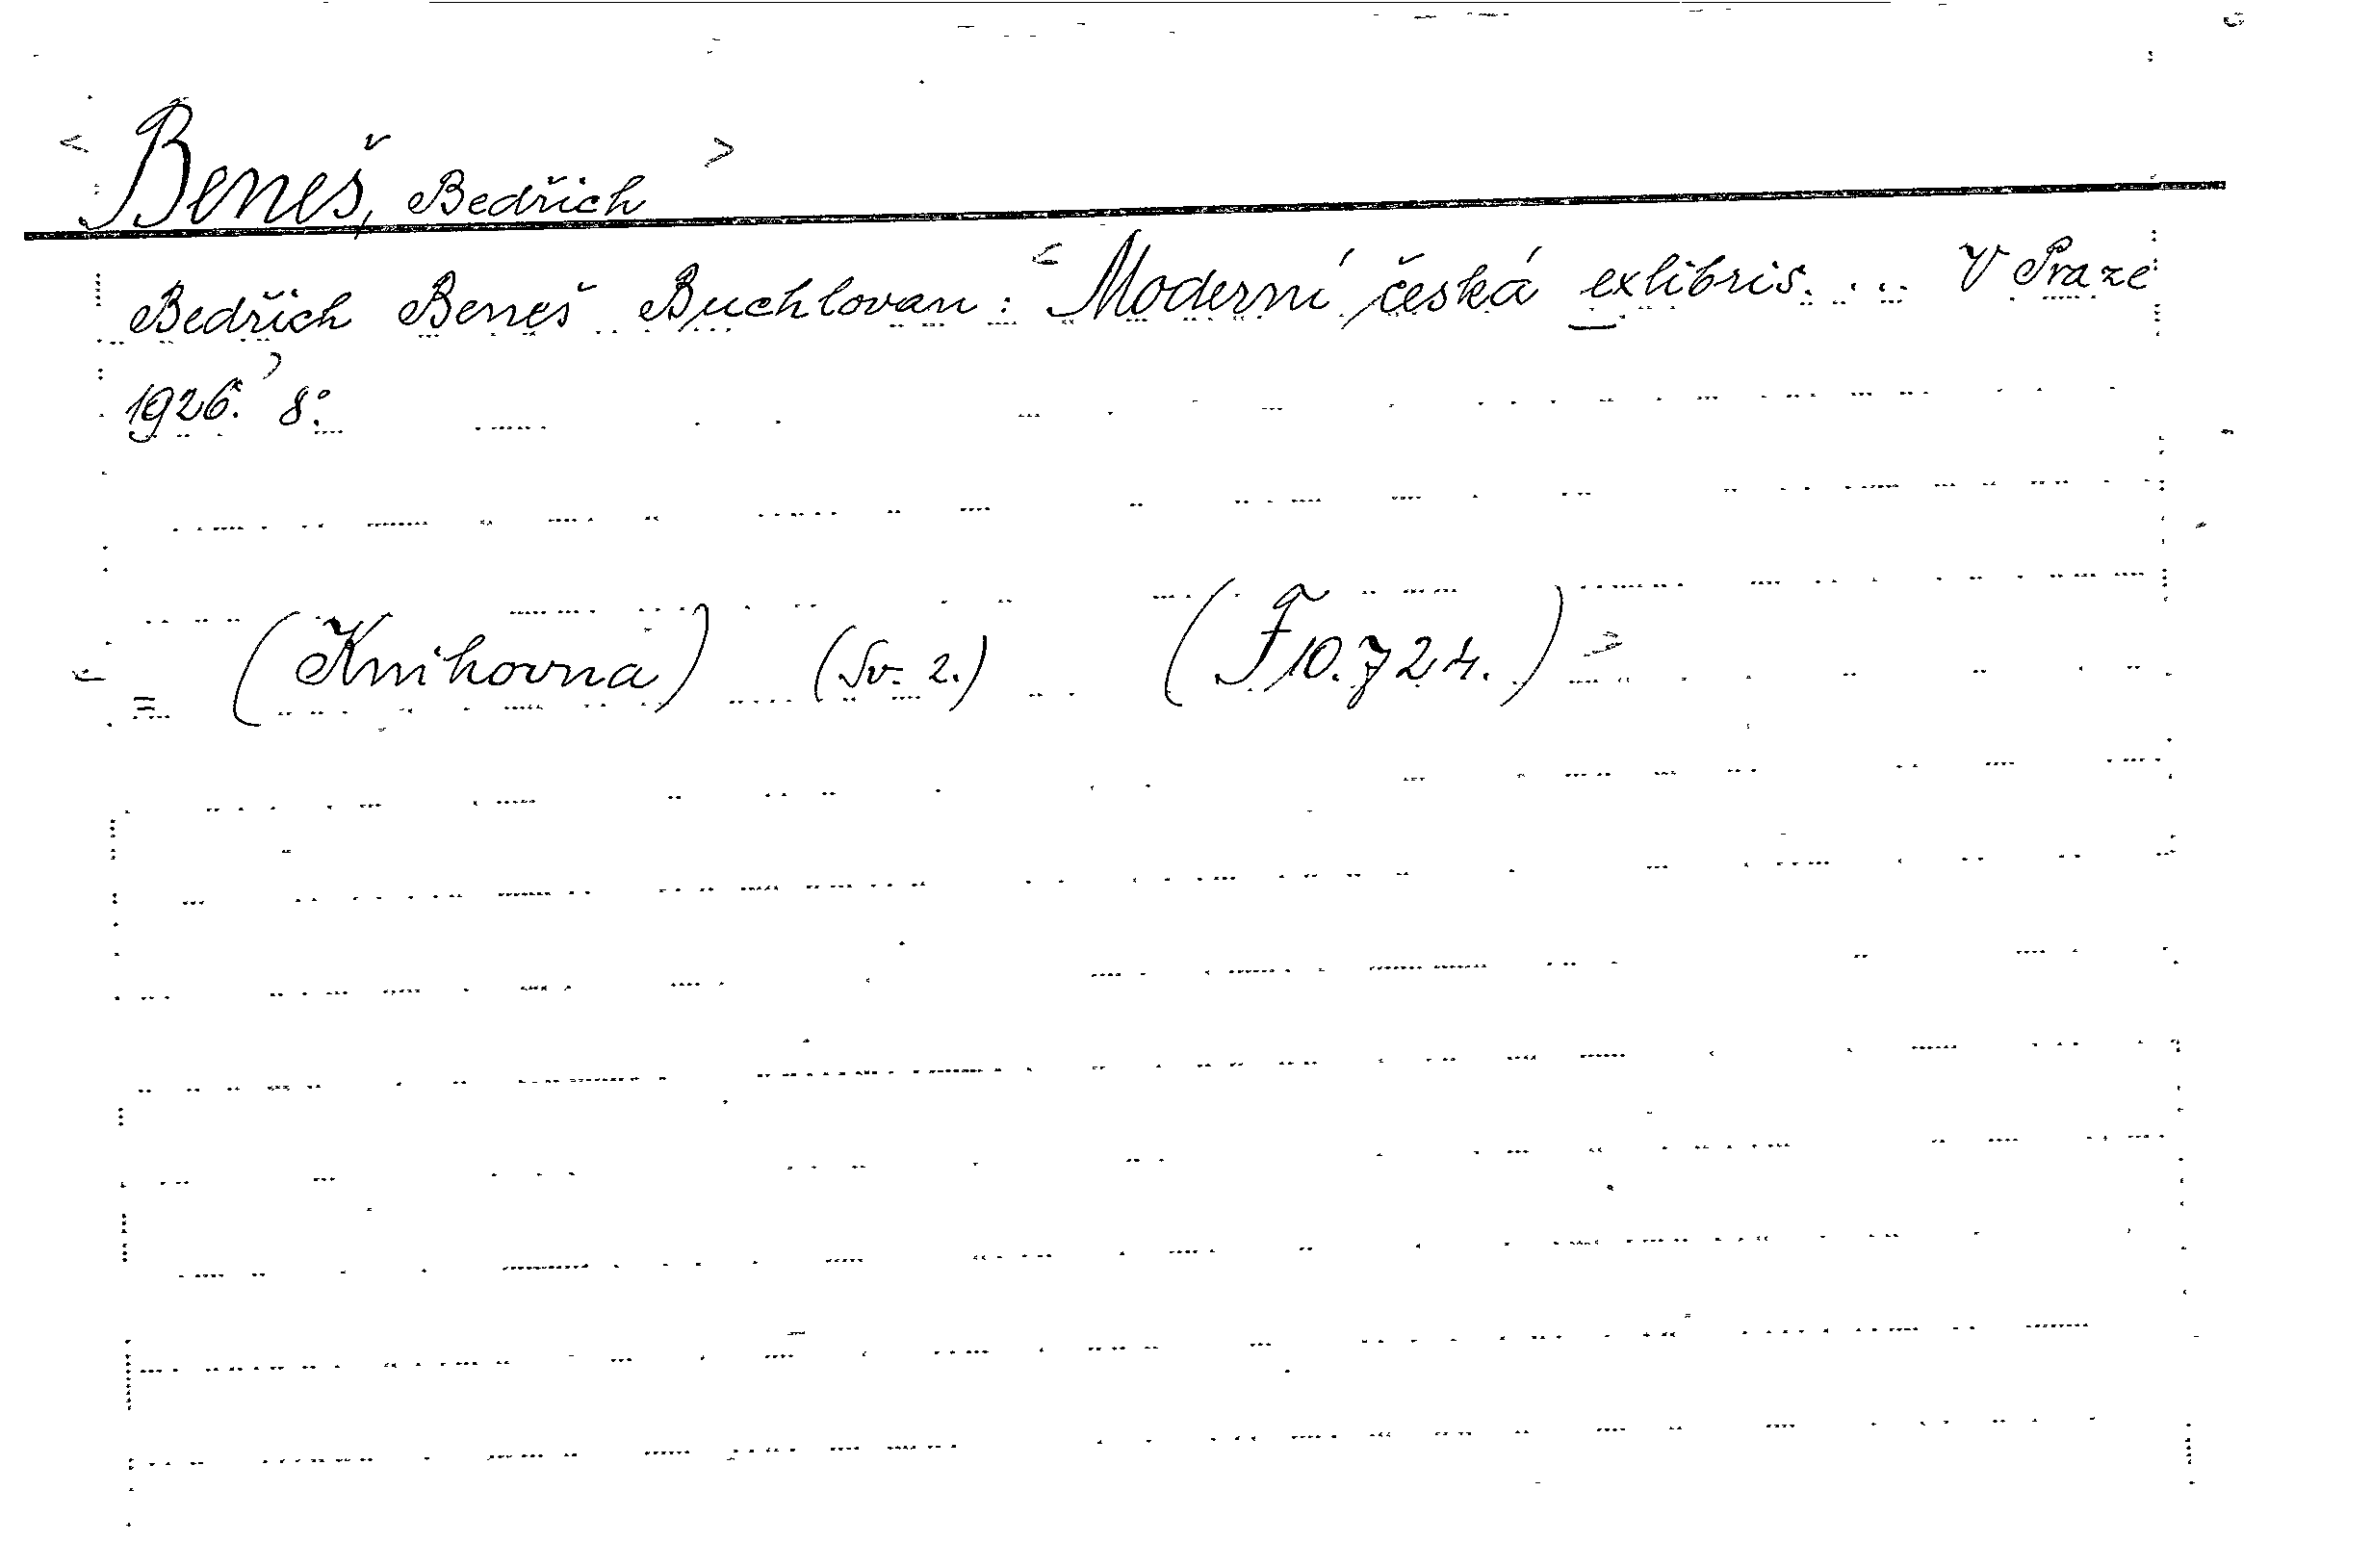 < Beneš, Bedřich >
Bedřich Beneš Buchlovan: < Moderní česká exlibris. ... V Praze
1926. 8°.
= (Knihovna) (Sv. 2.) (F 10.724.) >